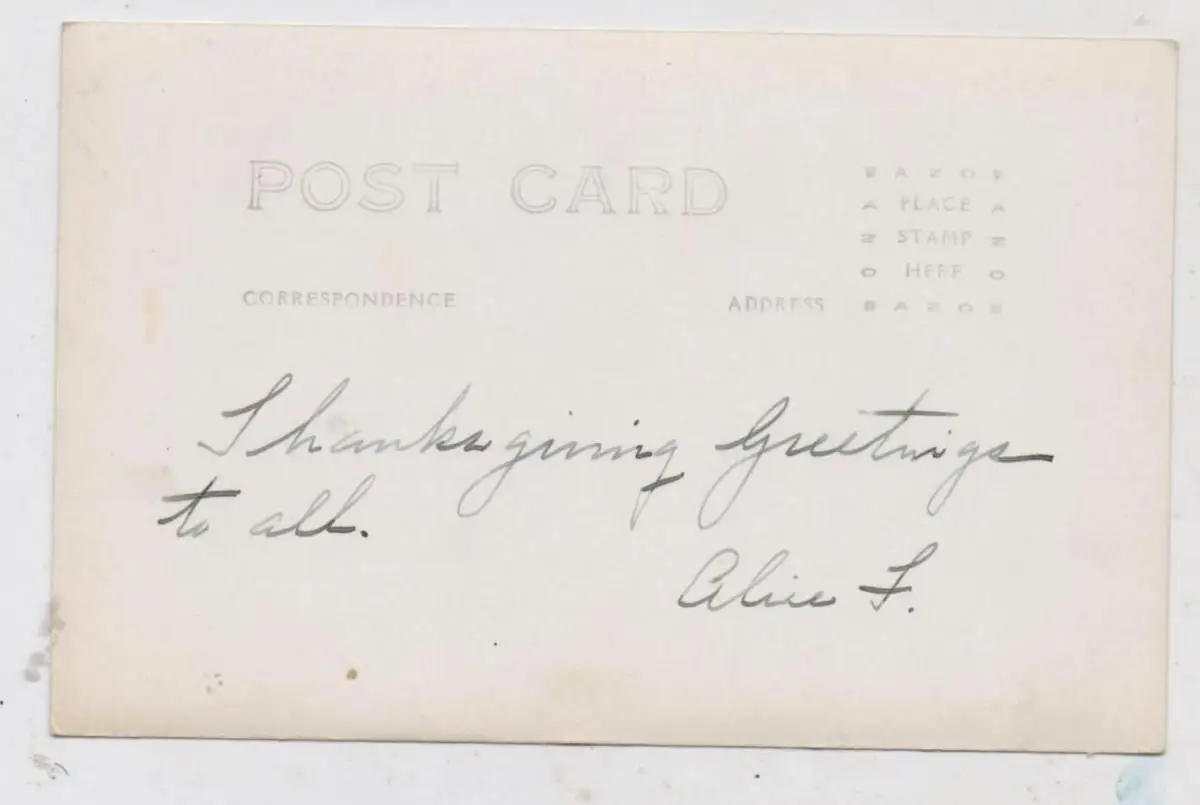 POST CARD
A Z O
A PLACE A
Z STAMP Z
O HERE O
A Z O
CORRESPONDENCE
ADDRESS
Thanksgiving Greetings
to all.
Alice F.